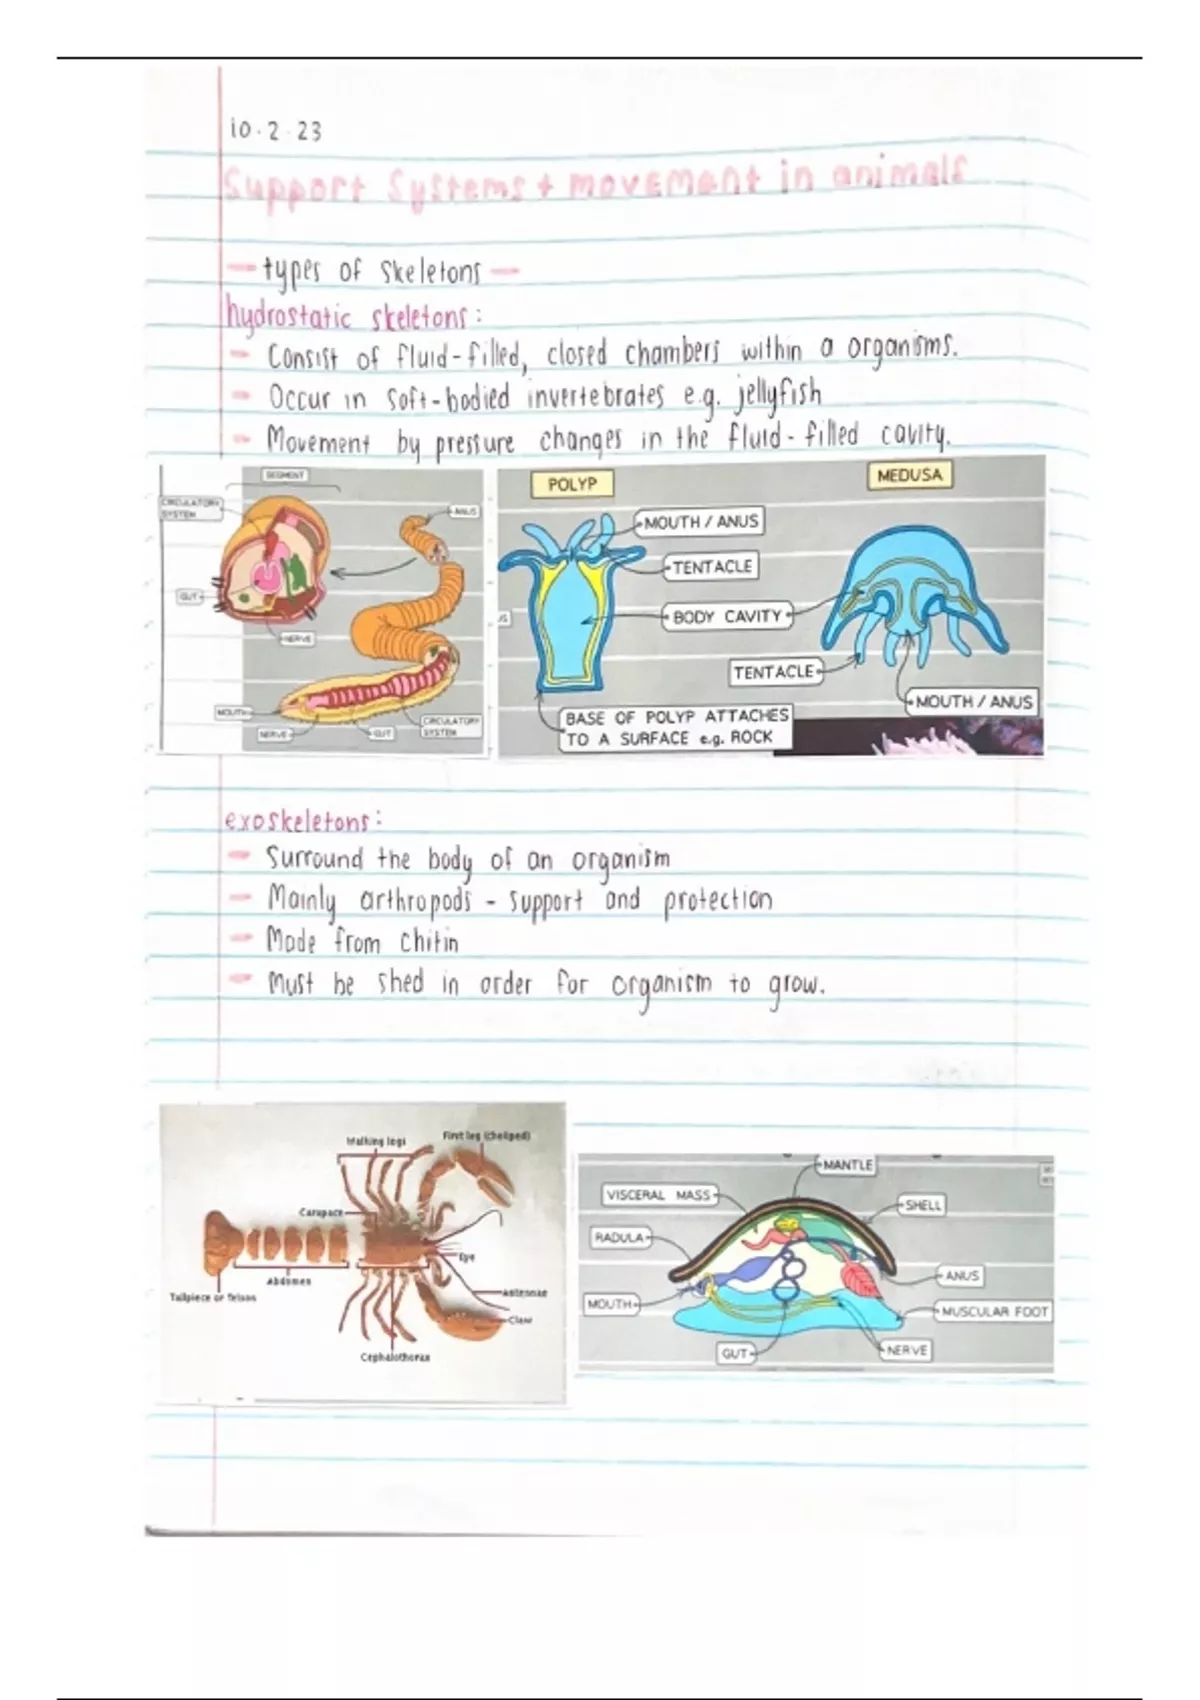 10.2.23
Support Systems + movement in animals
— types of skeletons —
hydrostatic skeletons:
- Consist of fluid-filled, closed chambers within a organisms.
- Occur in soft-bodied invertebrates e.g. jellyfish
- Movement by pressure changes in the fluid-filled cavity.
SEGMENT
CIRCULATORY
SYSTEM
ANUS
GUT
NERVE
MOUTH
NERVE
GUT
CIRCULATORY
SYSTEM
POLYP
MEDUSA
MOUTH / ANUS
TENTACLE
BODY CAVITY
TENTACLE
MOUTH / ANUS
BASE OF POLYP ATTACHES
TO A SURFACE e.g. ROCK
exoskeletons:
- Surround the body of an organism
- Mainly arthropods - support and protection
- Made from chitin
- Must be shed in order for organism to grow.
Walking legs
First leg (cheliped)
Carapace
Eye
Abdomen
Tailpiece or Telson
Antennae
Claw
Cephalothorax
MANTLE
VISCERAL MASS
SHELL
RADULA
ANUS
MOUTH
MUSCULAR FOOT
GUT
NERVE